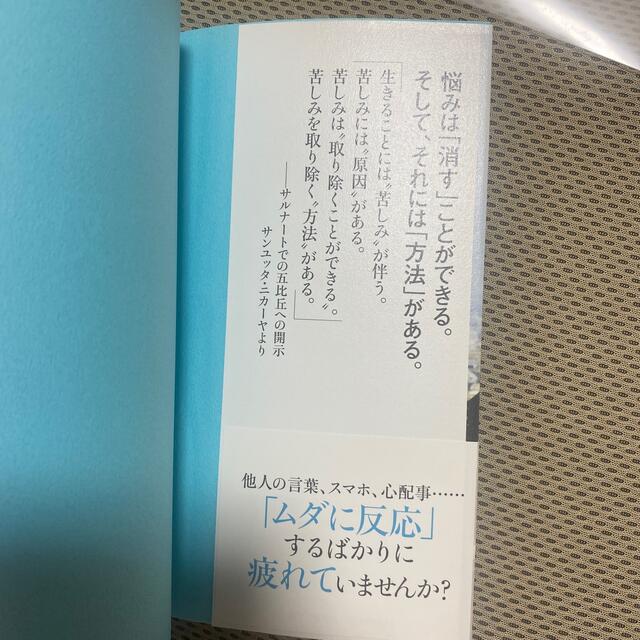 悩みは「消す」ことができる。
そして、それには「方法」がある。
「生きることには〝苦しみ〟が伴う。
苦しみには〝原因〟がある。
苦しみは〝取り除くことができる〟。
苦しみを取り除く〝方法〟がある。」
――サルナートでの五比丘への開示
サンユッタ・ニカーヤより
他人の言葉、スマホ、心配事……
「ムダに反応」
するばかりに
疲れていませんか?